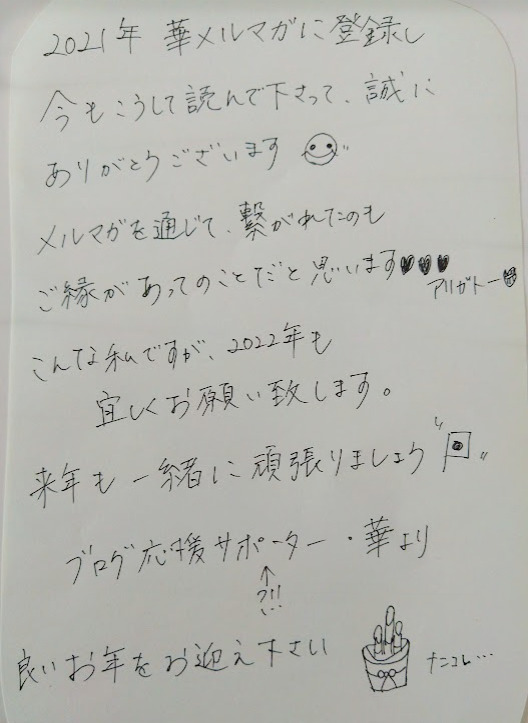 2021年 華メルマガに登録し
今もこうして読んで下さって、誠に
ありがとうございます
メルマガを通じて、繋がれたのも
ご縁があってのことだと思います♥♥♥
アリガトー
こんな私ですが、2022年も
宜しくお願い致します。
来年も一緒に頑張りましょう
ブログ応援サポーター・華より
↑
?!!
良いお年をお迎え下さい
ナニコレ…